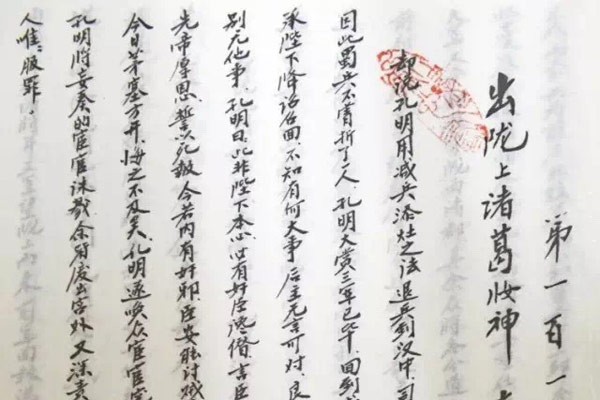 第一百一
出陇上诸葛妆神
却说孔明用减兵添灶之法,退兵到汉中,司
因此蜀兵不曾折了一人,孔明大赏三军已毕,回到
承陛下降诏召回,不知有何大事,后主无言可对,良
别无他事,孔明曰,此非陛下本心,必有奸臣谗僭,言臣
先帝厚恩,誓以死报,今若内有奸邪,臣安能讨贼
今日茅塞方开,悔之不及矣,孔明遂唤众宦官
孔明将妄奏的宦官诛戮,余皆废出宫外,又深责
人唯唯服罪。